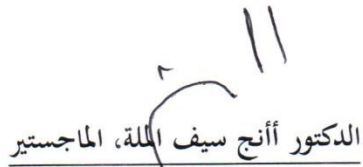 الدكتور أأنج سيف الملة، الماجستير